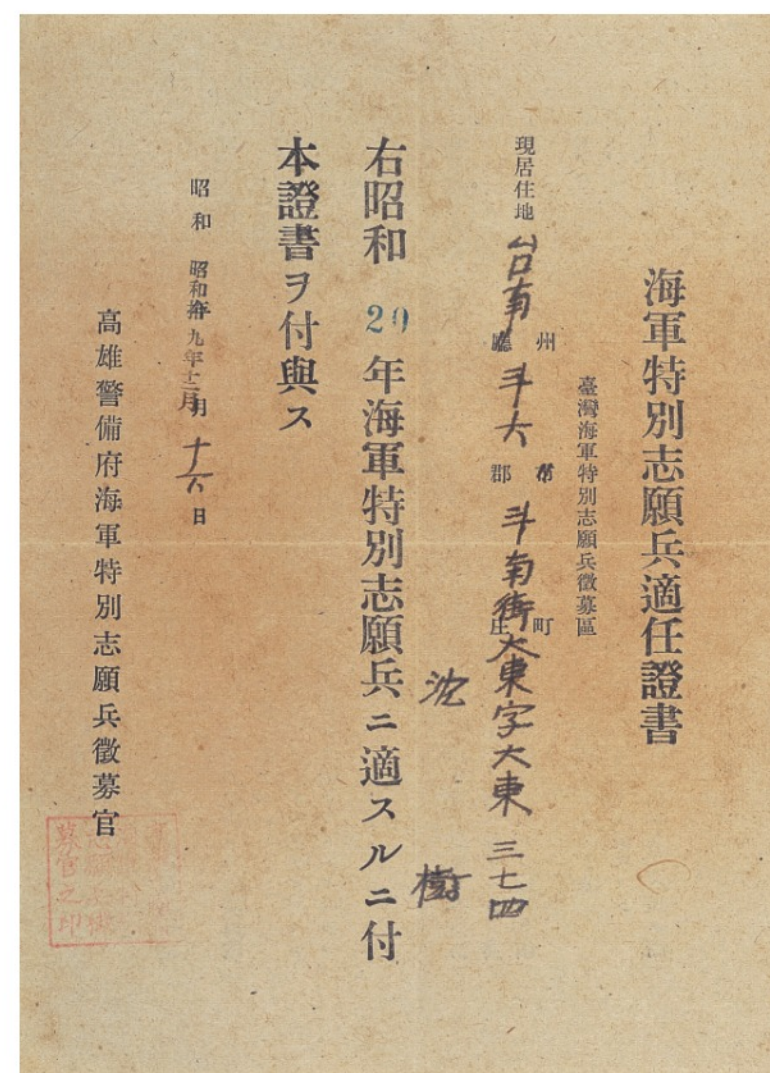 海軍特別志願兵適任證書
臺灣海軍特別志願兵徵募區
現居住地 台南 州 廳 斗六 市 郡 斗南街 町 庄 大東字大東 三七四
沈 樹
右昭和 20 年海軍特別志願兵ニ適スルニ付
本證書ヲ付與ス
昭和 昭和拾九年十二月 年 月 十六 日
高雄警備府海軍特別志願兵徵募官
募官之印